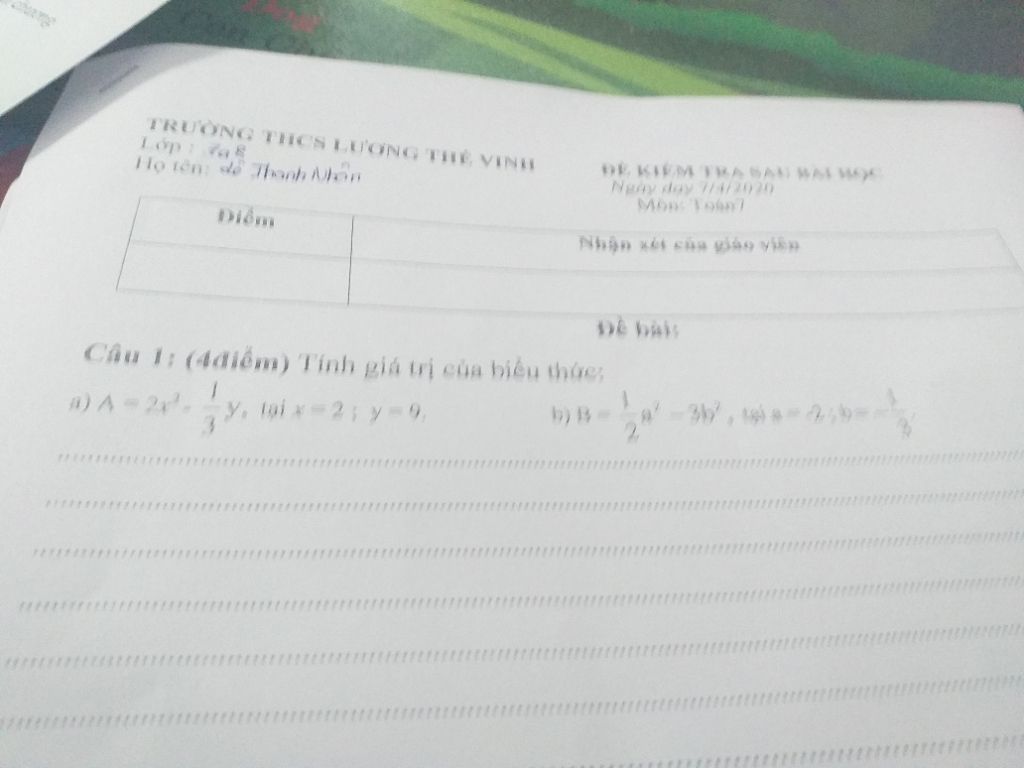 TRƯỜNG THCS LƯƠNG THẾ VINH
Lớp : 7a8
Họ tên: đỗ Thanh Nhân
ĐỀ KIỂM TRA SAU BÀI HỌC
Ngày dạy 7/4/2020
Môn: Toán7
Điểm
Nhận xét của giáo viên
Đề bài:
Câu 1: (4điểm) Tính giá trị của biểu thức:
a) A = 2x² - 1/3 y, tại x = 2 ; y = 9.
b) B = 1/2 a² - 3b², tại a = -2 ; b = -1/3